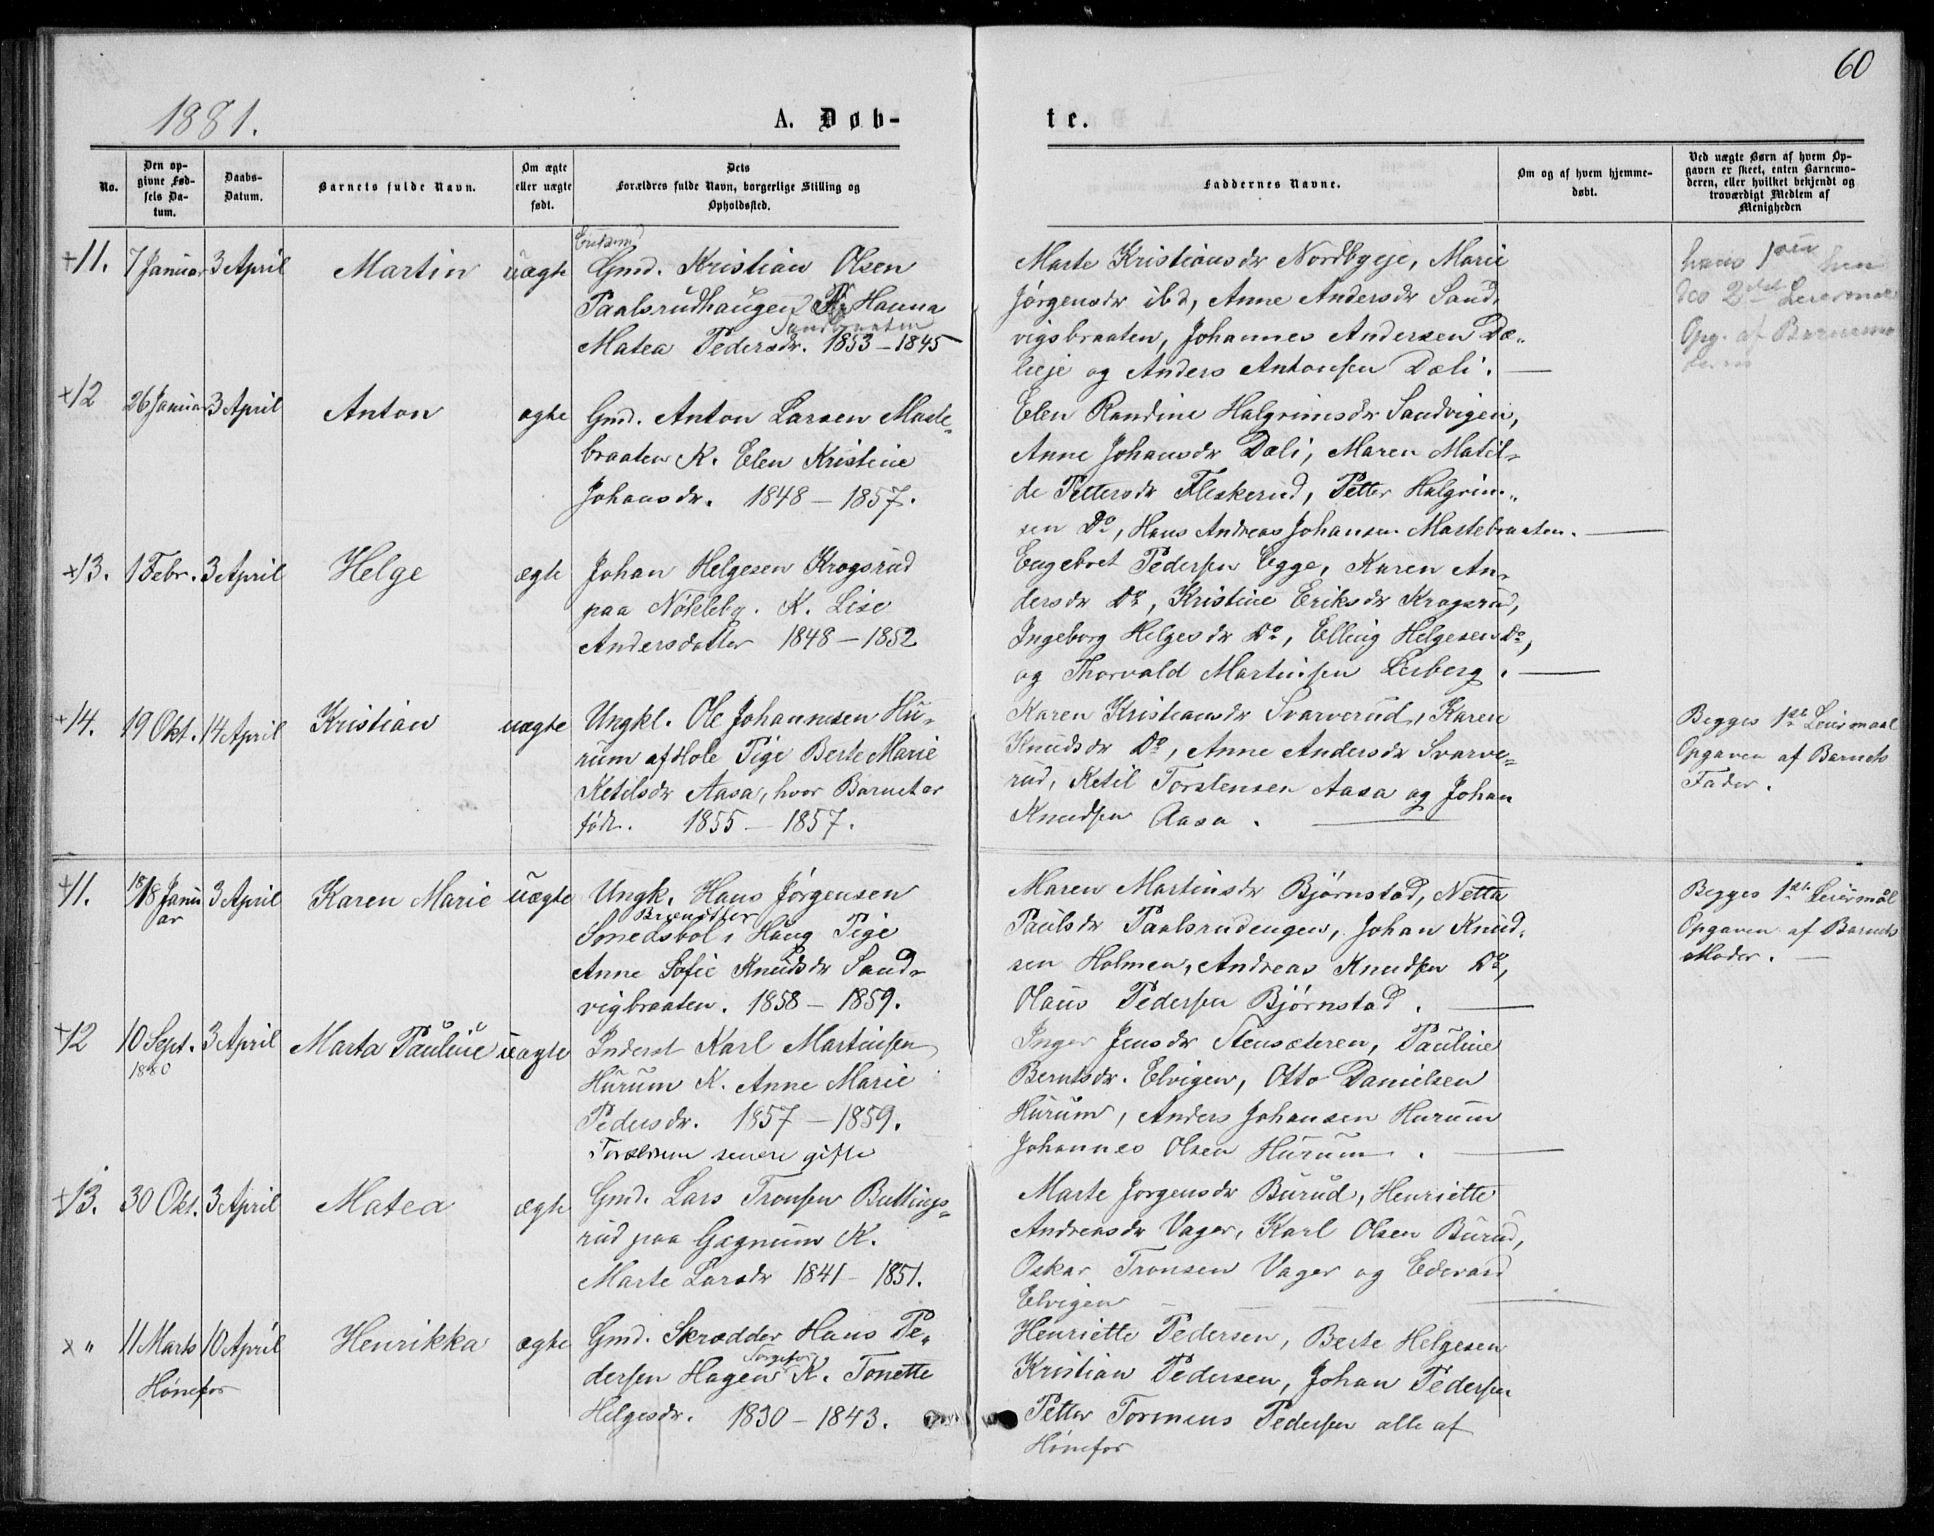 60
1881.
A. Døb-
te.
No.
Den op-
givne Fød-
sels Da-
tum.
Daabs-
Datum.
Barnets fulde Navn.
Om ægte
eller uægte
født.
Dets
Forældres fulde Navn, borgerlige Stilling og
Opholdssted.
Faddernes Navne.
Om og af hvem hjemme-
døbt.
Ved uægte Børn af hvem Op-
gaven er skeet, enten Barnemo-
deren, eller hvilket bekjendt og
troværdigt Medlem af
Menigheden
+11. 7 Januar 3 April Martin uægte
Gmd. Kristian Olsen
Paalsrudhaugen Hanna
Sandbraaten
Matea Pedersdr. 1853 – 1845
Marte Kristiansdr Nordbyeje, Marie
Jørgensdr ibd, Anne Andersdr Sand-
vigsbraaten, Johannes Andersen Dæ-
lieje og Anders Antonsen Dæli. —
hans 1ste hen
des 2det Leiermaal
Opg. af Barnemo
deren
+12 26 Januar 3 April Anton ægte
Gmd. Anton Larsen Maste-
braaten K. Elen Kristine
Johansdr. 1848 – 1857.
Elen Randine Halgrimsdr Sandvigen,
Anne Johansdr Dæli, Maren Matil-
de Pettersdr Fleskerud, Petter Halgrim-
sen Do, Hans Andreas Johansen Mastebraaten. —
+13. 1 Febr. 3 April Helge ægte
Johan Helgesen Krogsrud
paa Nøkleby. K. Lise
Andersdatter 1848 – 1852
Engebret Pedersen Egge, Karen An-
dersdr Do, Kristine Eriksdr Krogsrud,
Ingeborg Helgesdr Do, Elling Helgesen Do,
og Thorvald Martinsen Lerberg. —
+14. 19 Okt. 14 April Kristian uægte
Ungkl. Ole Johannesen Hu-
rum af Hole Pige Berte Marie
Ketilsdr Aasa, hvor Barnet er
født. 1855 – 1857.
Karen Kristiansdr Svarverud, Karen
Knudsdr Do, Anne Andersdr Svarve-
rud, Ketil Torstensen Aasa og Johan
Knudsen Aasa. —
Begges 1ste Leiermaal
Opgaven af Barnets
Fader.
+11. 18 Janu
ar 3 April Karen Marie uægte
Ungk. Hans Jørgensen
Smedsbøl i Haug Pige
Anne Sofie Knudsdr Sand-
vigbraaten. 1858 – 1859.
Maren Martinsdr Bjørnstad, Netta
Paulsdr Paalsrudengen, Johan Knud-
sen Holmen, Andreas Knudsen Do,
Olaus Pedersen Bjørnstad. —
Begges 1ste Leiermål
Opgaven af Barnets
Moder. —
+12 10 Sept. 3 April Marta Pauline uægte
1880
Inderst Karl Martinsen
Hurum K. Anne Marie
Pedersdr. 1857 – 1859.
Forældrene senere gifte
Inger Jensdr Stensæteren, Pauline
Berntsdr. Elvigen, Otto Danielsen
Hurum, Anders Johansen Hurum
Johannes Olsen Hurum. —
+13. 30 Okt. 3 April Matea ægte
Gmd. Lars Tronsen Buttings-
rud paa Gagnum K.
Marte Larsdr 1841 – 1851.
Marte Jorgensdr Burud, Henriette
Andreasdr Vager, Karl Olsen Burud,
Oskar Tronsen Vager og Edevard
Elvigen —
x " 11 Marts 10 April Henrikka ægte
Hønefos
Gmd. Skrædder Hans Pe-
dersen Hagen K. Tonette
Helgesdr. 1830 – 1843.
Henriette Pedersen, Berte Helgesen
Kristian Pedersen, Johan Pedersen
Petter Tormius Pedersen alle af
Hønefos